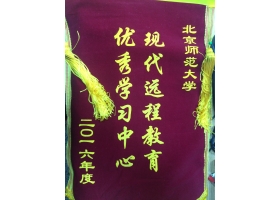 北京师范大学
现代远程教育
优秀学习中心
二〇一六年度